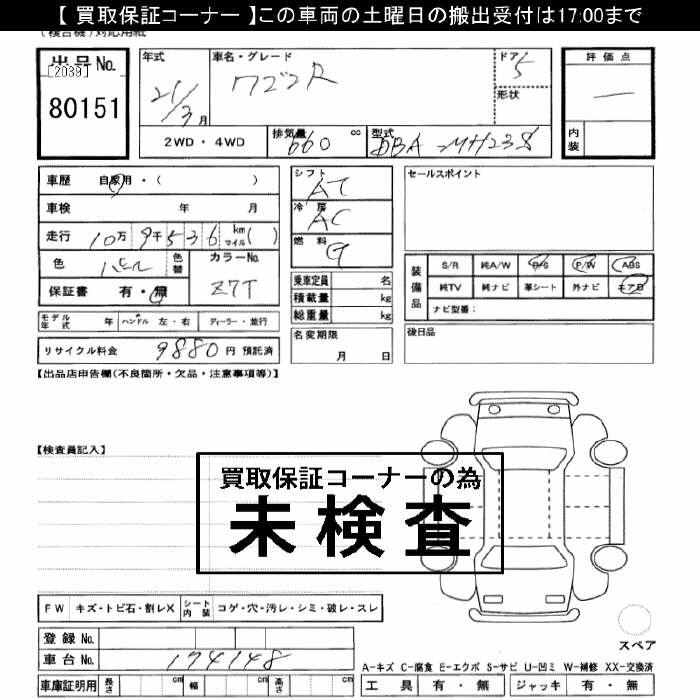 【 買取保証コーナー 】この車両の土曜日の搬出受付は17:00まで
(複合機)対応用紙
出品No.
[2039]
80151
年式
21/3月
車名・グレード
ワゴンR
ドア
5
形状
評価点
―
内装
2WD ・ 4WD
排気量
660 cc
型式
DBA-MH23S
車歴 自家用・( )
車検 年 月
走行 10万 9千 5 3 6 km マイル ( )
色
色替
カラーNo.
Z7T
保証書 有・無
モデル年式 年 ハンドル 左・右 ディーラー・並行
リサイクル料金 9880 円 預託済
シフト
AT
冷房
AC
燃料
G
乗車定員 名
積載量 kg
総重量 kg
名変期限
月 日
セールスポイント
装備品
S/R 純A/W P/S P/W ABS
純TV 純ナビ 革シート 外ナビ エアB
ナビ型番:
後日品
【出品店申告欄(不良箇所・欠品・注意事項等)】
【検査員記入】
買取保証コーナーの為
未検査
FW キズ・トビ石・割レX シート内装 コゲ・穴・汚レ・シミ・破レ・スレ
登録 No.
車台 No. 174148
車庫証明用 長さ cm 幅 cm 高さ cm
スペア
A-キズ C-腐食 E-エクボ S-サビ U-凹ミ W-補修 XX-交換済
工具 有・無 ジャッキ 有・無